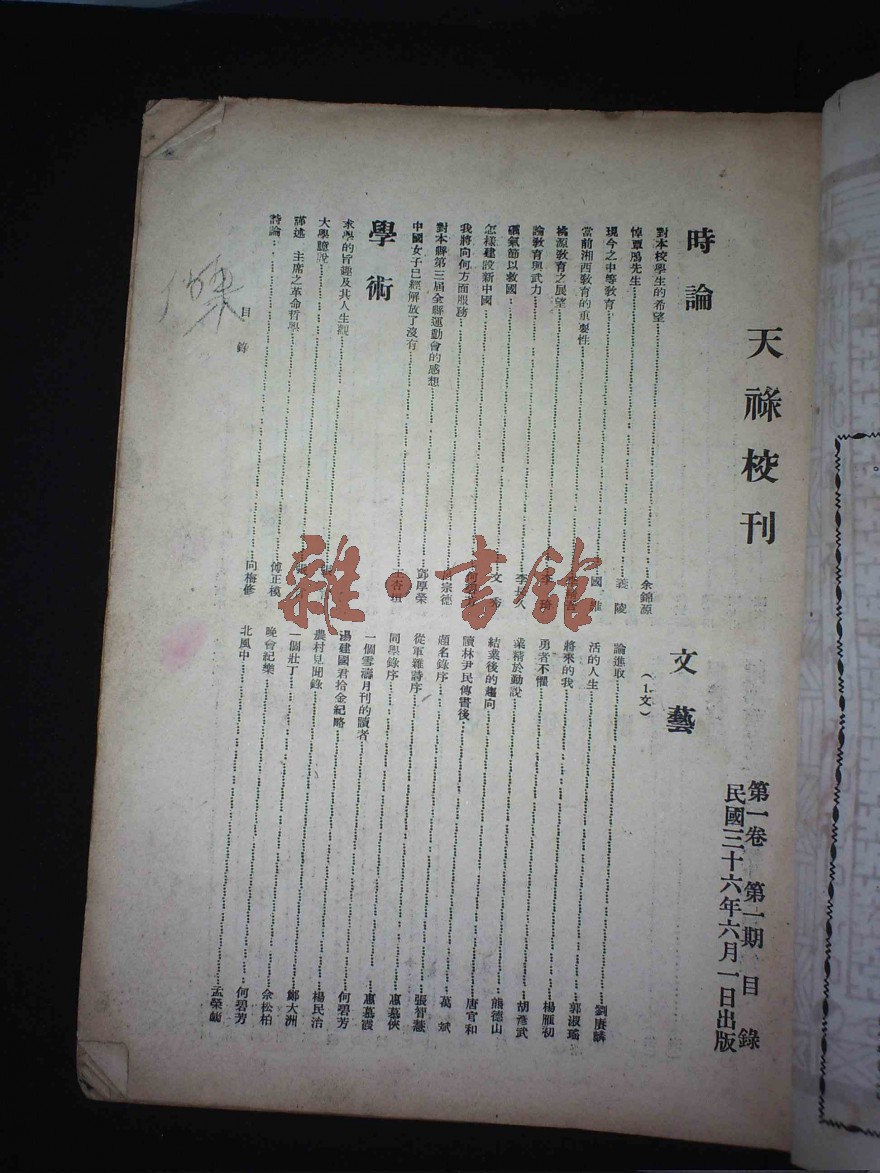 天祿校刊
第一卷 第一期 目錄
民國三十六年六月一日出版
時論
對本校學生的希望 余錦源
悼覃鳬先生 義陵
現今之中等教育 國
當前湘西教育的重要性
桃源教育之展望 李
論教育與武力 李 人
礪氣節以救國 文
怎樣建設新中國
我將向何方面服務 宗德
對本縣第三屆全縣運動會的感想 鄧厚榮
中國女子已經解放了沒有 王
學術
求學的旨趣及其人生觀
大學臆說
譯述 主席之革命哲學 傅正模
詩論 向梅修
文藝
(1.文)
論進取 劉賡麟
活的人生 郭淑瑤
將來的我 楊雁初
勇者不懼 胡彥武
業精於勤說 熊德山
結業後的趨向 唐官和
讀林尹民傳書後 萬斌
題名錄序 張智慧
從軍雜詩序 惠慕俠
同學錄序 惠慕霞
一個雪濤月刊的讀者 何碧芳
湯建國君拾金紀略 楊民治
農村見聞錄 鄭大洲
一個壯丁 余松柏
晚會紀樂 何碧芳
北風中 孟榮
目錄
雜·書館